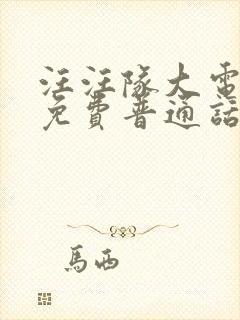 汪汪隊大電
免費普通話
馬西